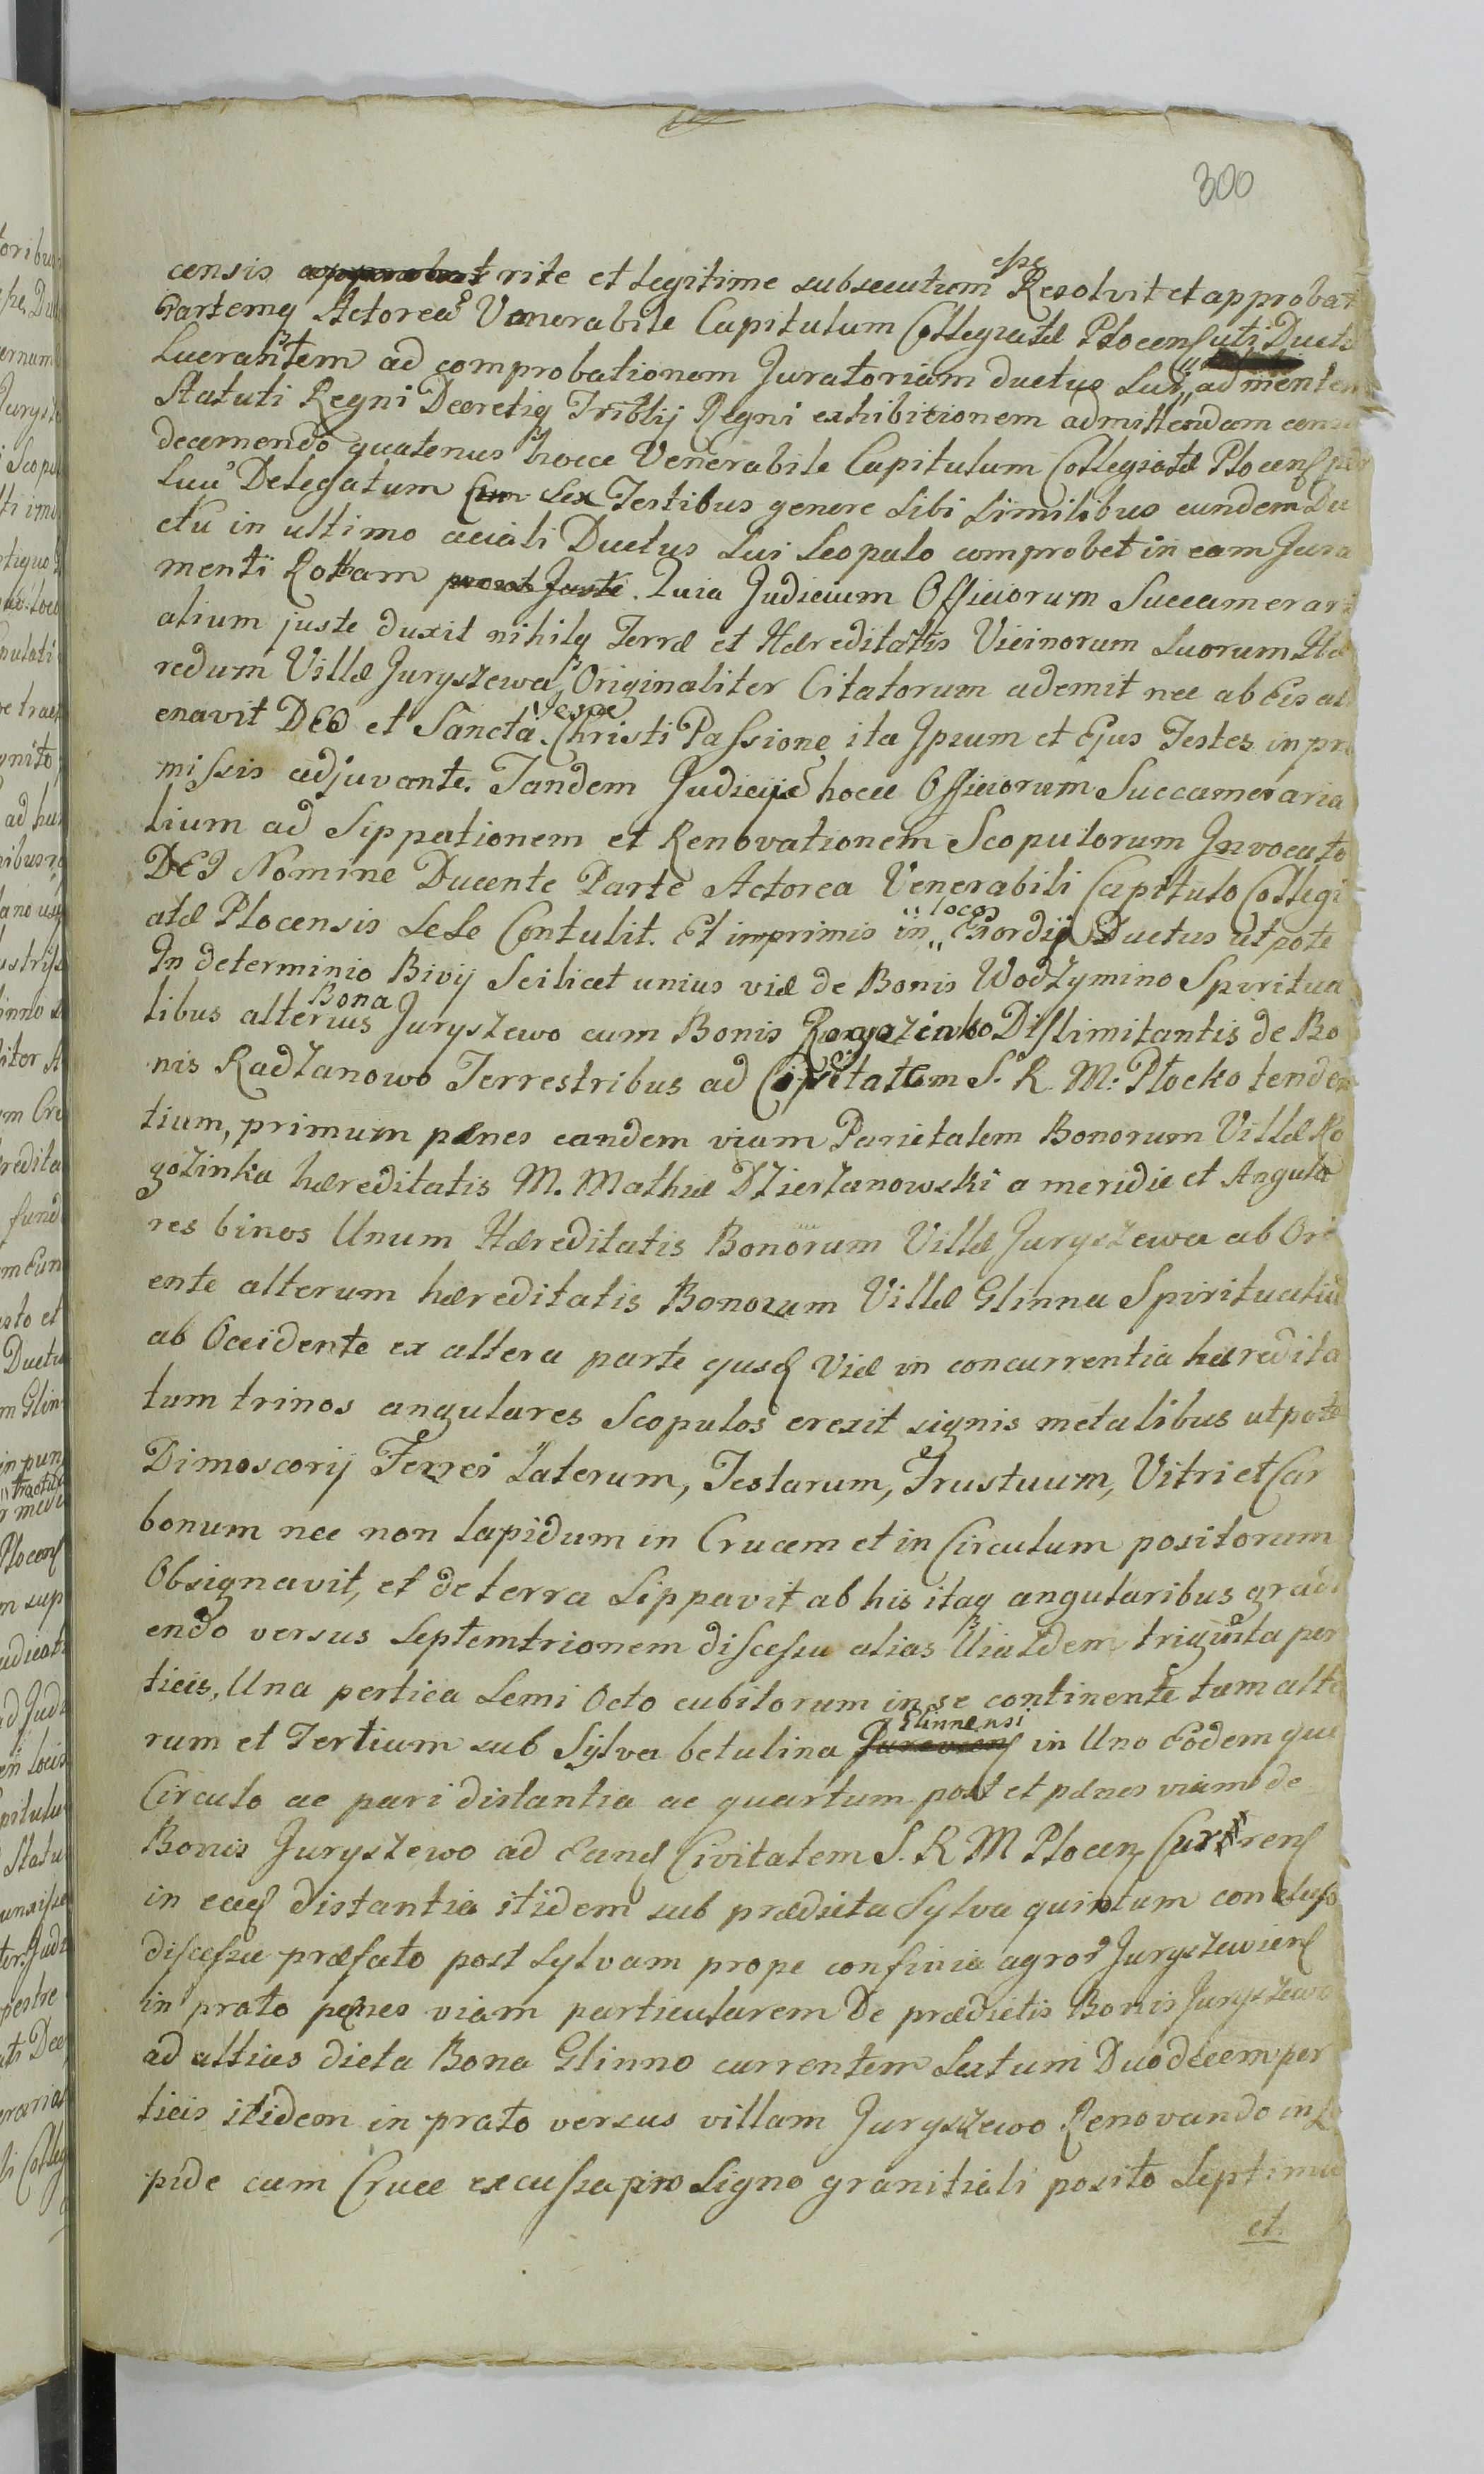 300
censis approbat rite et legitime subsecutum esse Resolvit et approbat
Partemq Actorea Venerabile Capitulum Collegiatæ Plocens uti Ductu
Lucrantem ad comprobationem Juratoriam ductus Sui ad mentem
Statuti Regni Decretiq Triblij Regni exhibitionem admittendam
decernendo quatenus hocce Venerabile Capitulum Collegiatæ Plocens per
Suu Delegatum cum sex Testibus genere Sibi Similibus eundem Du
ctu in ultimo aciali Ductus Sui Scopulo comprobet in eam Jura
menti Rotham prout Juste. Quia Judicium Officiorum Succamerari
alium juste duxit nihilq Terræ et Hæreditatis Vicinorum Suorum Hæ
redum Villæ Juryszewa Originaliter Citatorum ademit nec ab Eis ali
enavit DEO et Sancta Jesae Christi Passione ita Ipsum et Ejus Testes in præ
missis adjuvante. Tandem Judicium hocce Officiorum Succameraria
lium ad Sippationem et Renovationem Scopulorum Invocato
DEI Nomine Ducente Parte Actorea Venerabili Capitulo Collegi
atæ Plocensis SeSe Contulit. Et imprimis in loco Exordij Ductus utpote
In determinio Bivij Scilicet unius viæ de Bonis Wodzymino Spiritua
libus alterius Bona Juryszewo cum Bonis Rogozinko Dislimitantis de Bo
nis Radzanowo Terrestribus ad Civitatem S. R. M: Płocko tenden
tium, primum pænes eandem viam Parietalem Bonorum Villæ Ro
gozinka hæreditatis M. Mathiæ Dzierzanowski a meridie et Angula
res binos Unum Hæreditatis Bonorum Villæ Juryszewa ab Ori
ente alterum hæreditatis Bonorum Villæ Glinna Spiritualiu
ab Occidente ex altera parte ejusd Viæ in concurrentia hæredita
tum trinos angulares Scopulos erexit signis metalibus utpote
Dimoscorij Ferrei Laterum, Testarum, Frustuum, Vitri et Car
bonum nec non lapidum in Crucem et in Circulum positorum
Obsignavit, et de terra Sippavit ab his itaq angularibus gradi
endo versus Septemtrionem discessu alias Uiazdem triginta per
ticis, Una pertica Semi Octo cubitorum in se continente tum alte
rum et Tertium sub Sylva betulina Glinnensi in Uno Eodemque
Circulo ac pari distantia ac quartum post et pænes viam de
Bonis Juryszewo ad Eand Civitatem S. R M Plocen Currens
in ead distantia itidem sub prædicta Sylva quintum concluso
discessu præfato post Sylvam prope confinia agror Juryszewiens
in prato pænes viam particularem De prædictis Bonis Juryszewo
ad altias dicta Bona Glinno currentem Sextum Duodecem per
ticis itidem in prato versus villam Juryszewo Renovando in
pide cum Cruce excussa pro Signo granitiali posito Septimu
et